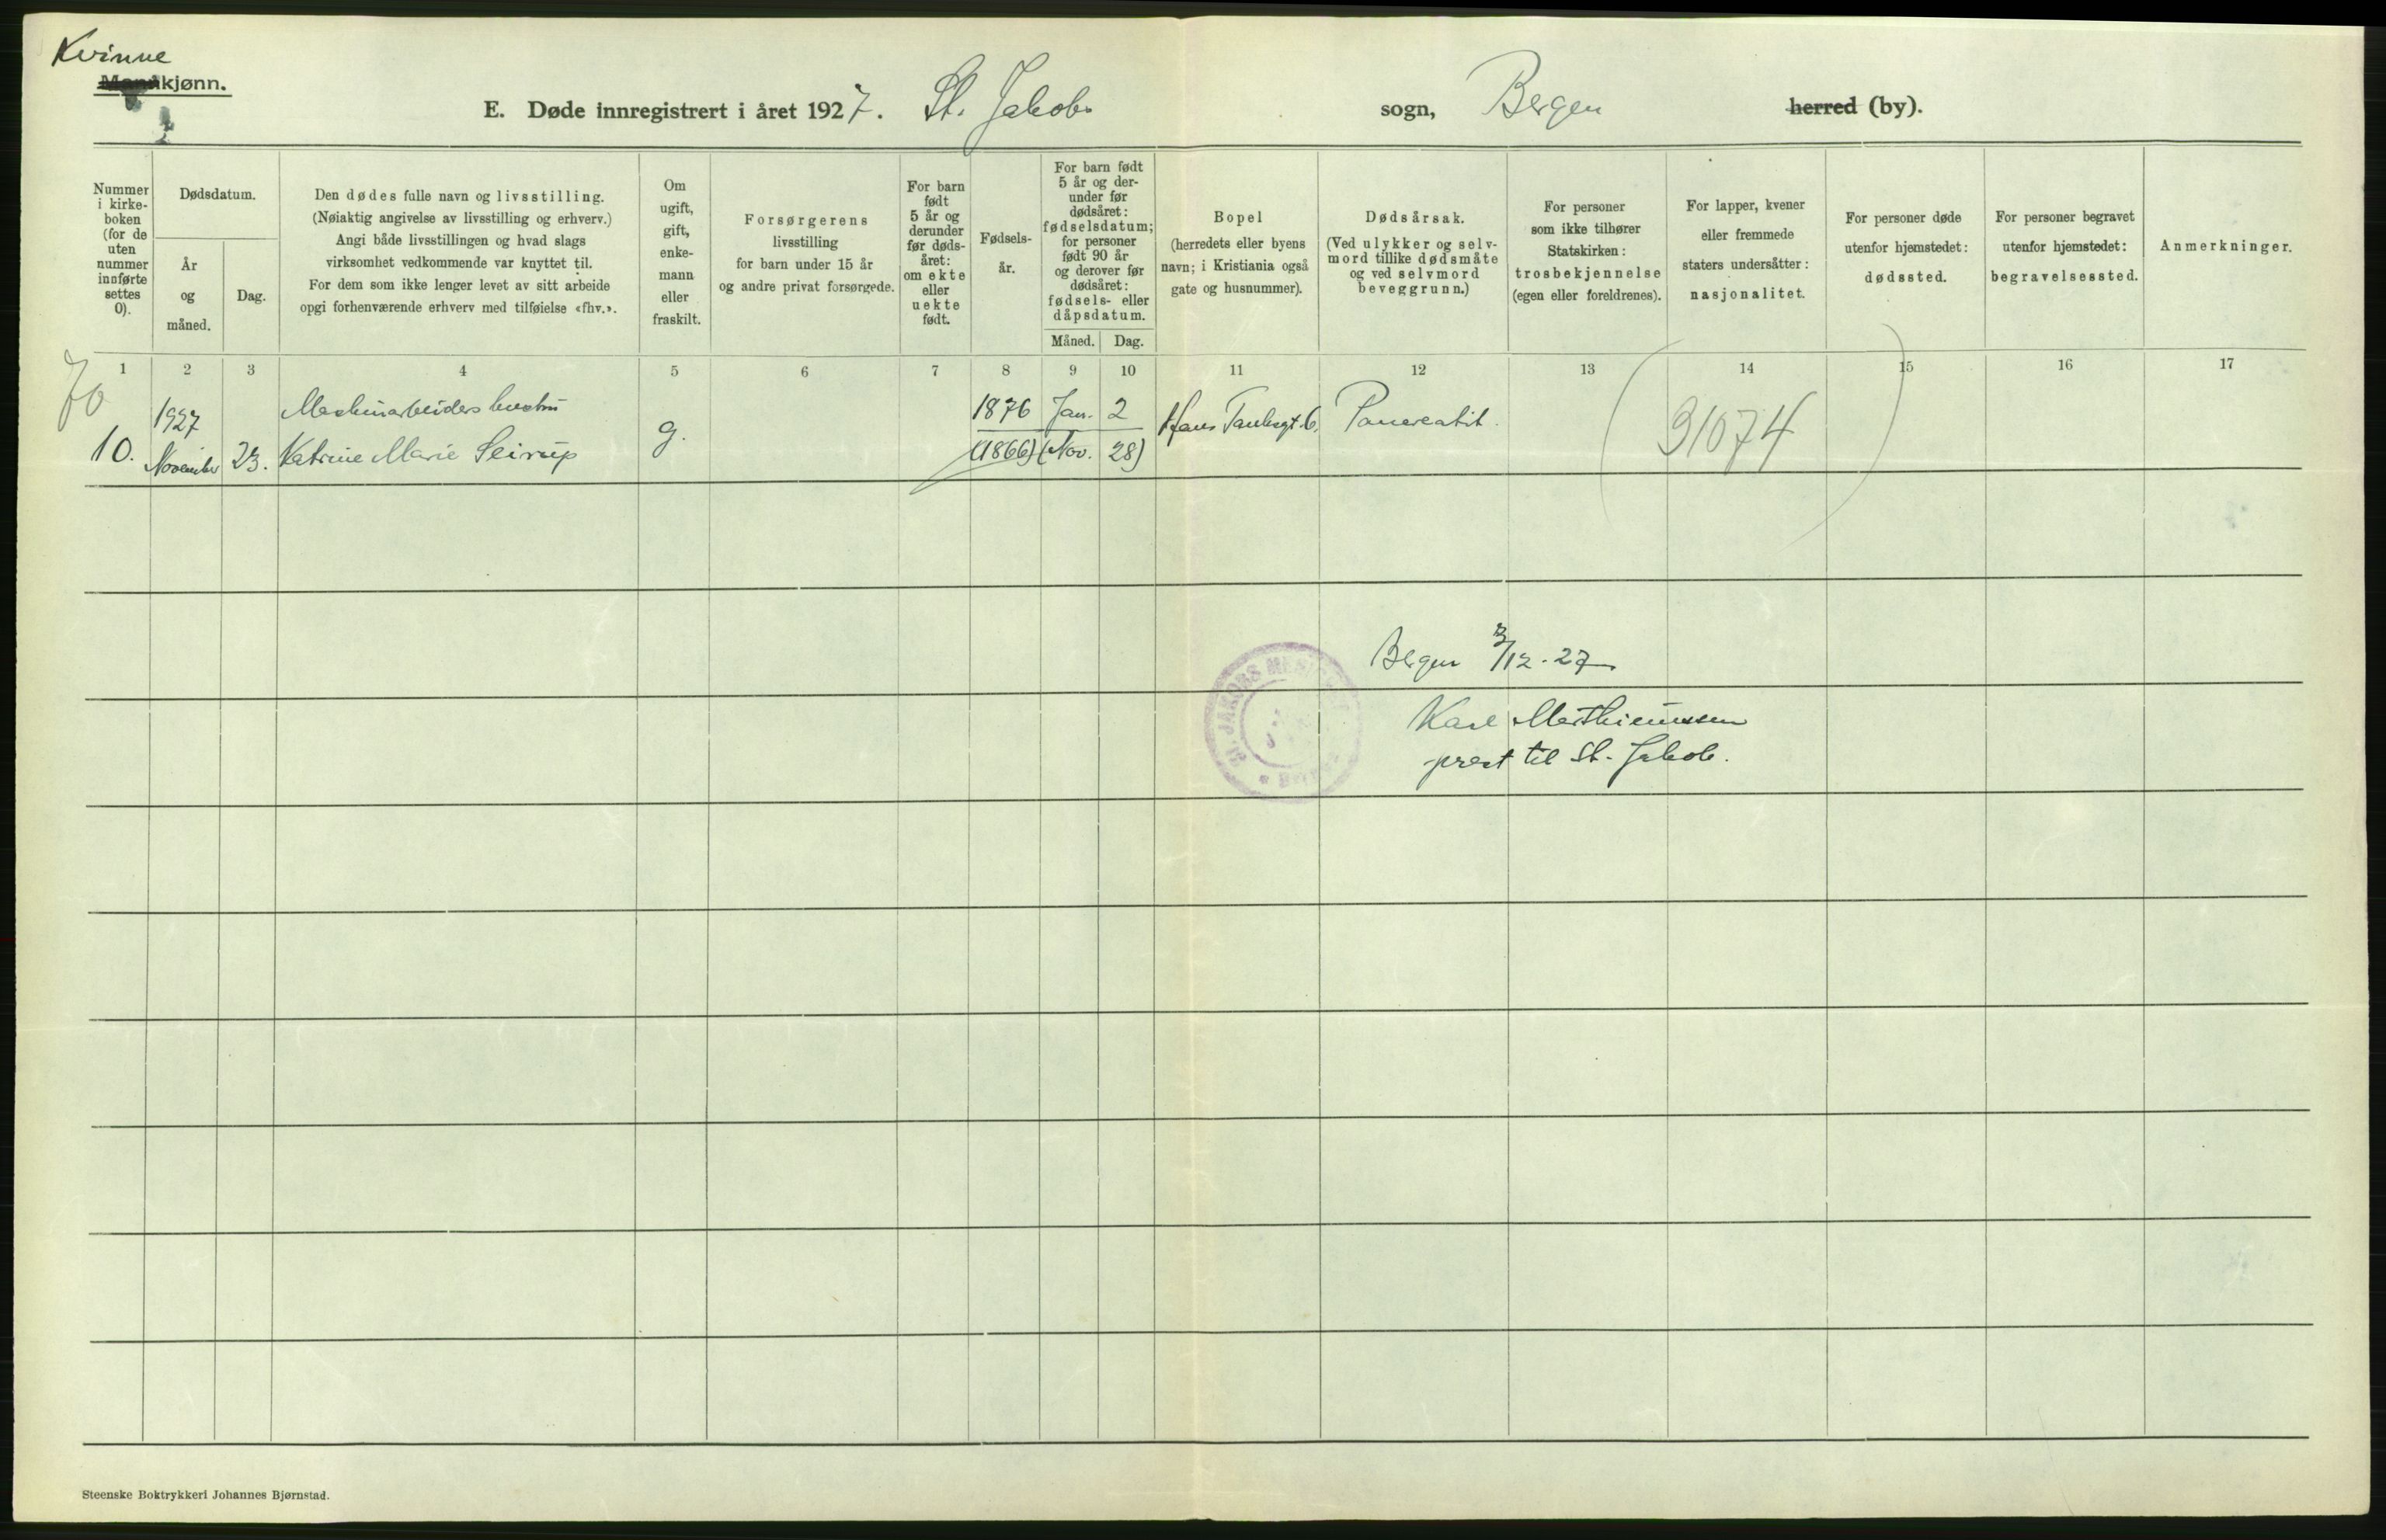 Kvinne
Mannkjønn.
2
E. Døde innregistrert i året 1927. St. Jakobs sogn, Bergen herred (by).
Nummer i kirke- boken (for de uten nummer innførte settes 0).
Dødsdatum.
År og måned.
Dag.
Den dødes fulle navn og livsstilling.
(Nøiaktig angivelse av livsstilling og erhverv.)
Angi både livsstillingen og hvad slags
virksomhet vedkommende var knyttet til.
For dem som ikke lenger levet av sitt arbeide
opgi forhenværende erhverv med tilføielse «fhv.».
Om ugift, gift, enke- mann eller fraskilt.
Forsørgerens
livsstilling
for barn under 15 år
og andre privat forsørgede.
For barn født 5 år og derunder før døds- året: om ekte eller uekte født.
Fødsels- år.
For barn født 5 år og der- under før dødsåret: fødselsdatum; for personer født 90 år og derover før dødsåret: fødsels- eller dåpsdatum.
Måned. Dag.
Bopel
(herredets eller byens
navn; i Kristiania også
gate og husnummer).
Dødsårsak.
(Ved ulykker og selv-
mord tillike dødsmåte
og ved selvmord
beveggrunn.)
For personer
som ikke tilhører
Statskirken:
trosbekjennelse
(egen eller foreldrenes).
For lapper, kvener
eller fremmede
staters undersåtter:
nasjonalitet.
For personer døde
utenfor hjemstedet:
dødssted.
For personer begravet
utenfor hjemstedet:
begravelsessted.
Anmerkninger.
1 2 3 4 5 6 7 8 9 10 11 12 13 14 15 16 17
70
1927 Maskinarbeiders hustru 1876 Jan. 2 Hans Tanksgt. 6. Pancreatit. (31074)
10. November 23. Katrine Marie Seirup g. (1866) (Nov. 28)
Bergen 3/12-27
Karl Marthinussen
prest til St. Jakob.
St. JAKOBS
Steenske Boktrykkeri Johannes Bjørnstad.